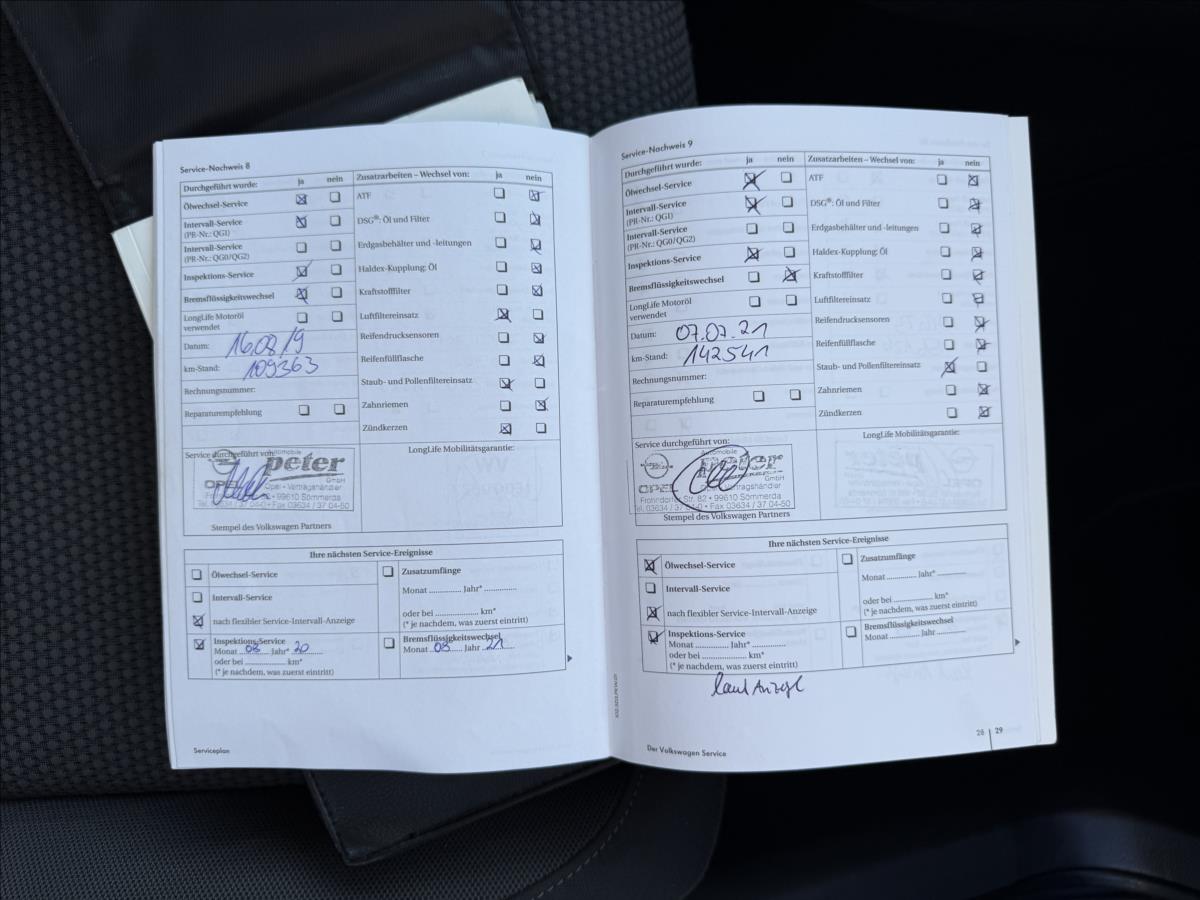 Service-Nachweis 8
Durchgeführt wurde: ja nein
Ölwechsel-Service
Intervall-Service
(PR-Nr.: QG1)
Intervall-Service
(PR-Nr.: QG0/QG2)
Inspektions-Service
Bremsflüssigkeitswechsel
LongLife Motoröl
verwendet
Datum: 16.08/19
km-Stand: 109363
Rechnungsnummer:
Reparaturempfehlung
Zusatzarbeiten – Wechsel von: ja nein
ATF
DSG®: Öl und Filter
Erdgasbehälter und -leitungen
Haldex-Kupplung: Öl
Kraftstofffilter
Luftfiltereinsatz
Reifendrucksensoren
Reifenfüllflasche
Staub- und Pollenfiltereinsatz
Zahnriemen
Zündkerzen
Service durchgeführt von:
Automobile
peter
GmbH
OPEL Opel • Vertragshändler
99610 Sömmerda
Tel. 03634 / 37 04-0 • Fax 03634 / 37 04-50
Stempel des Volkswagen Partners
LongLife Mobilitätsgarantie:
Ihre nächsten Service-Ereignisse
Ölwechsel-Service
Intervall-Service
nach flexibler Service-Intervall-Anzeige
Inspektions-Service
Monat 08 Jahr* 20
oder bei ................ km*
(* je nachdem, was zuerst eintritt)
Zusatzumfänge
Monat ............. Jahr* .............
oder bei ................ km*
(* je nachdem, was zuerst eintritt)
Bremsflüssigkeitswechsel
Monat 08 Jahr 21
Serviceplan
Service-Nachweis 9
Durchgeführt wurde: ja nein
Ölwechsel-Service
Intervall-Service
(PR-Nr.: QG1)
Intervall-Service
(PR-Nr.: QG0/QG2)
Inspektions-Service
Bremsflüssigkeitswechsel
LongLife Motoröl
verwendet
Datum: 07.07.21
km-Stand: 142541
Rechnungsnummer:
Reparaturempfehlung
Zusatzarbeiten – Wechsel von: ja nein
ATF
DSG®: Öl und Filter
Erdgasbehälter und -leitungen
Haldex-Kupplung: Öl
Kraftstofffilter
Luftfiltereinsatz
Reifendrucksensoren
Reifenfüllflasche
Staub- und Pollenfiltereinsatz
Zahnriemen
Zündkerzen
Service durchgeführt von:
Automobile
peter
GmbH
OPEL Vertragshändler
Frohndorfer Str. 82 • 99610 Sömmerda
Tel. 03634 / 37 04-0 • Fax 03634 / 37 04-50
Stempel des Volkswagen Partners
LongLife Mobilitätsgarantie:
Ihre nächsten Service-Ereignisse
Ölwechsel-Service
Intervall-Service
nach flexibler Service-Intervall-Anzeige
Inspektions-Service
Monat ............. Jahr* .............
oder bei ................ km*
(* je nachdem, was zuerst eintritt)
Zusatzumfänge
Monat ............. Jahr* .............
oder bei ................ km*
(* je nachdem, was zuerst eintritt)
Bremsflüssigkeitswechsel
Monat ............. Jahr .............
laut Anzeige
Der Volkswagen Service
28 | 29